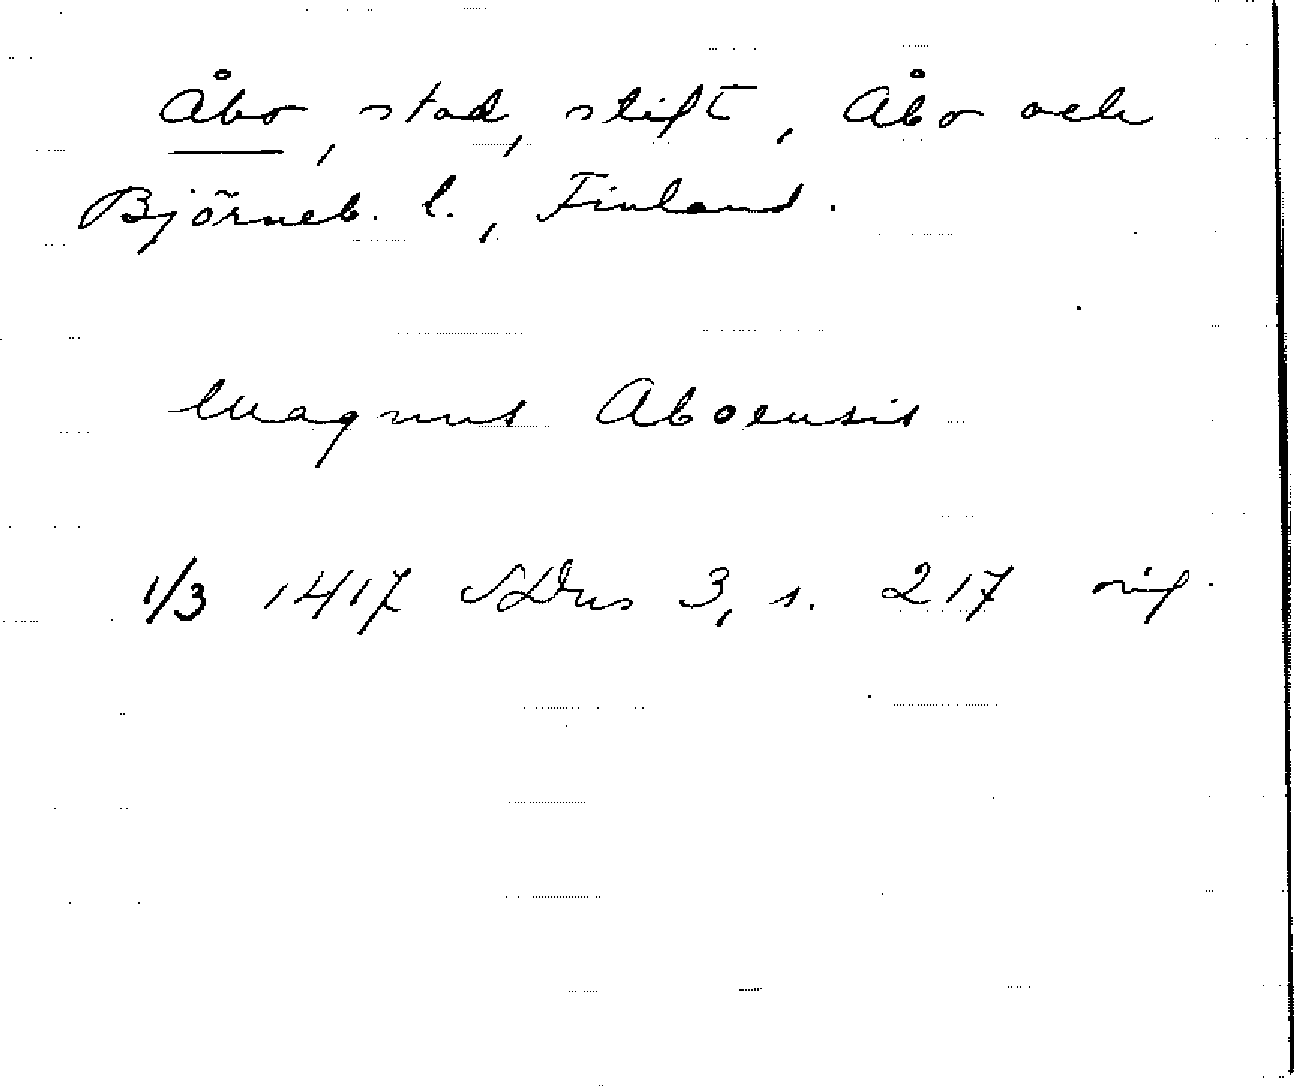 Åbo, stad, stift, Åbo och
Björneb. l., Finland.
Magnus Aboensis
1/3 1417 SDns 3, s. 217 orig.